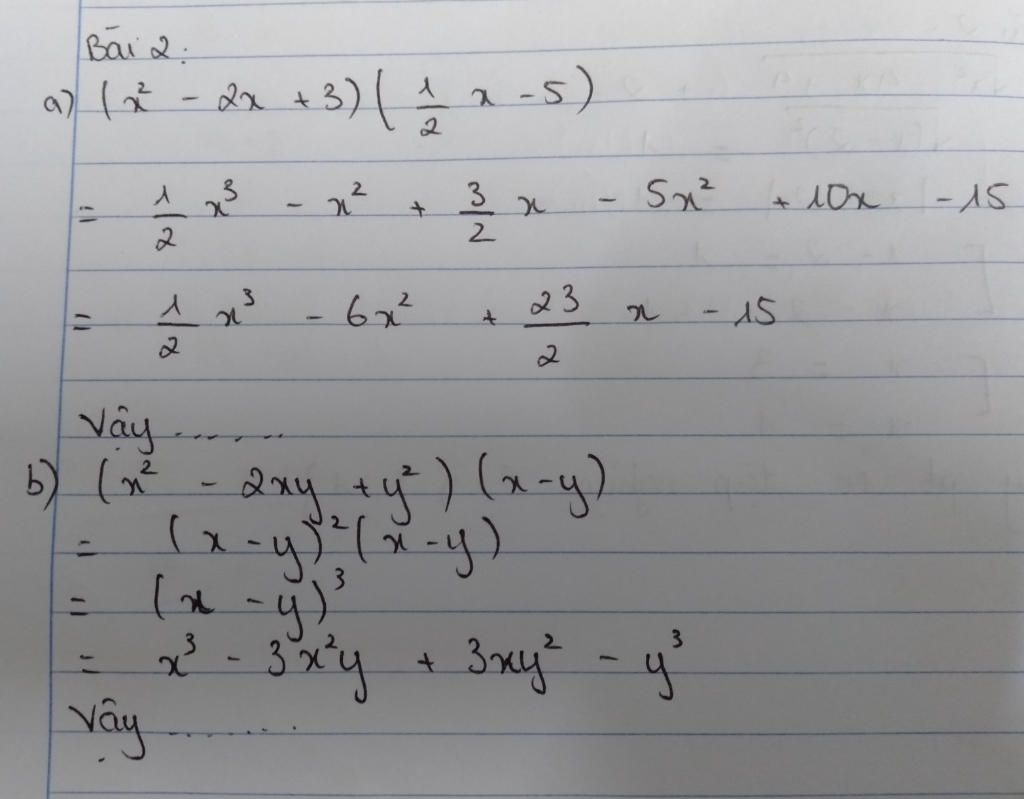 Bài 2:
a) (x² - 2x + 3)(1/2 x - 5)
= 1/2 x³ - x² + 3/2 x - 5x² + 10x - 15
= 1/2 x³ - 6x² + 23/2 x - 15
Vậy .......
b) (x² - 2xy + y²)(x-y)
= (x-y)²(x-y)
= (x-y)³
= x³ - 3x²y + 3xy² - y³
Vậy ........